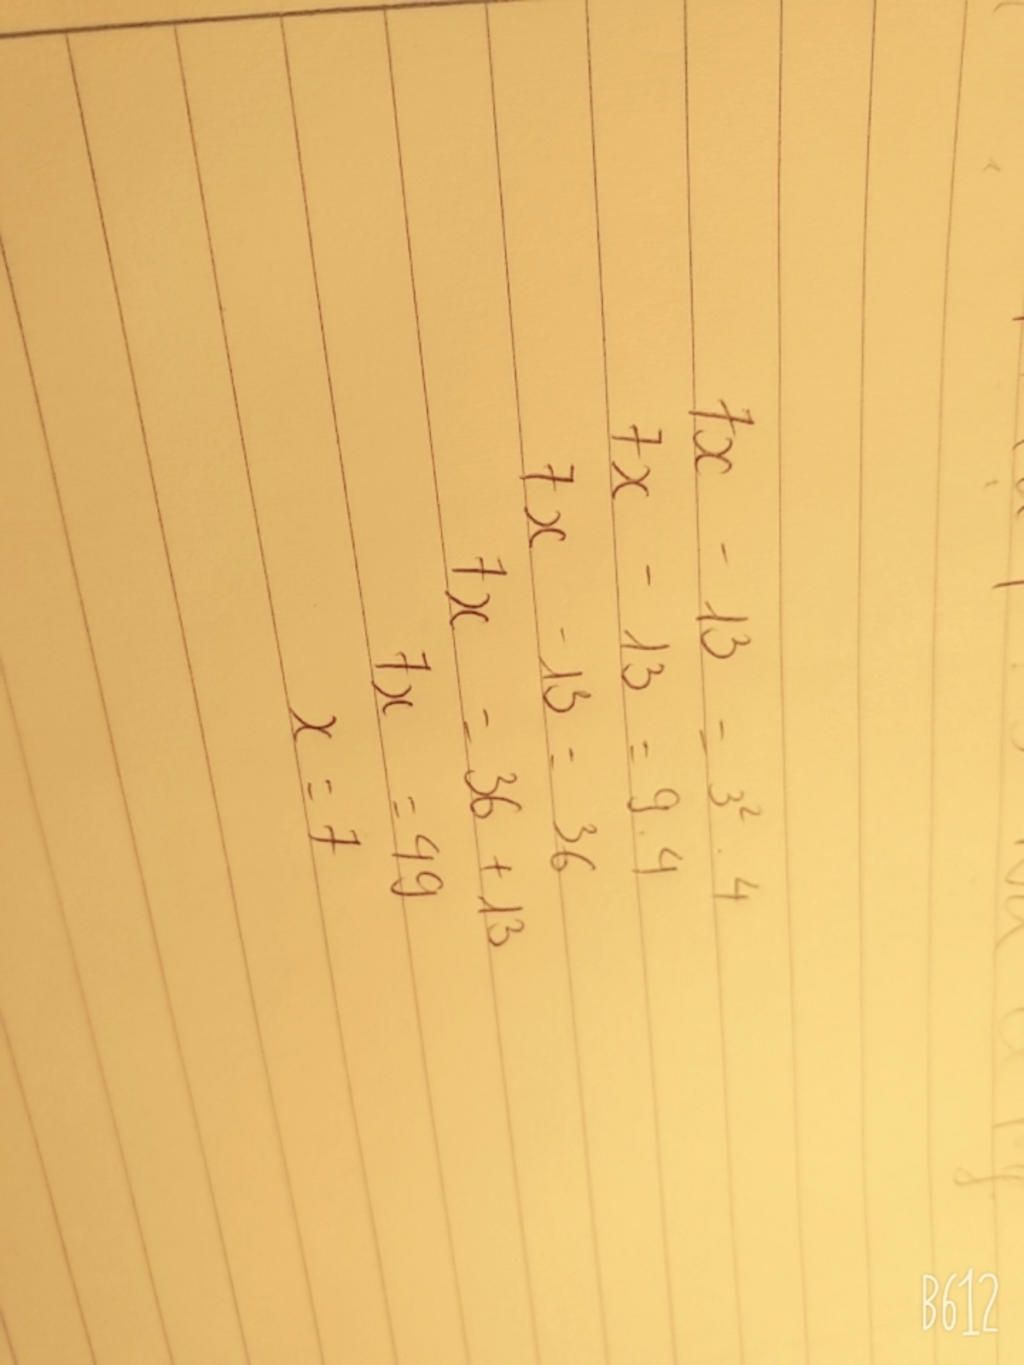 7x - 13 = 3² . 4
7x - 13 = 9 . 4
7x - 13 = 36
7x = 36 + 13
7x = 49
x = 7
B612